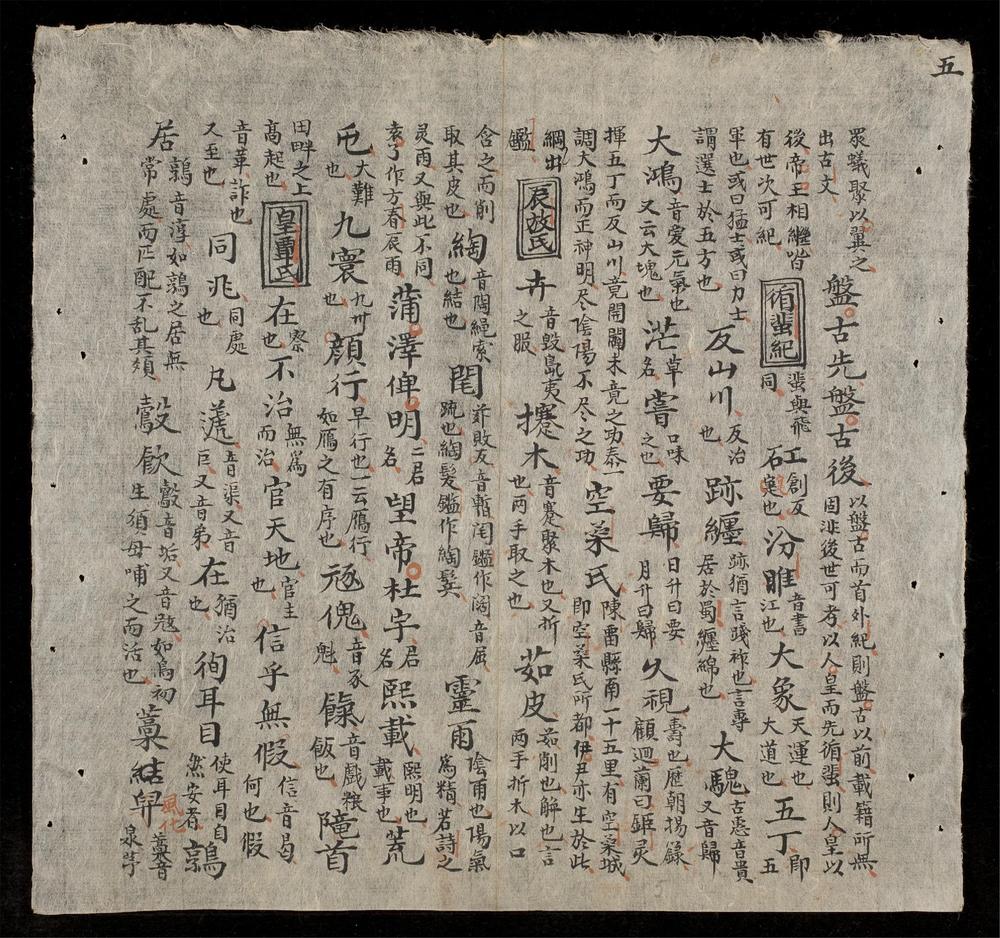 五
衆蟻聚以翼之
出古文
盤古先盤古後
以盤古而首外紀則盤古以前載籍所無
固非後世可考以人皇而先循蜚則人皇以
後帝王相繼皆
有世次可紀
循蜚紀
蜚與飛
同
工創反
石窟也
汾睢
音書
江也
大象
天運也
大道也
五丁
即
五
軍也或曰猛士或曰力士
謂選士於五方也
反山川
反治
也
跡纏
跡猶言踐祚也言專
居於蜀纏綿也
大騩
音貴
又音歸
大鴻
音爱元氣也
又云大塊也
茫
草
名
嘗
口味
之也
要歸
日升曰要
月升曰歸
久視
壽也歷朝揚録
顧迴蘭曰鉅灵
揮五丁而反山川竟開闢未竟之功泰一
調大鴻而正神明尽陰陽不尽之功
空桒氏
陳畱縣南一十五里有空桒城
即空桒氏所都伊尹亦生於此
綱出
鑑
辰放氏
卉
音毀島夷
之服
攓木
音蹇聚木也又折
也两手取之也
茹皮
茹削也解也言
两手折木以口
含之而削
取其皮也
綯
音陶繩索
也結也
莽敗反音暫
鑑作濶音屈
䟽也綯髮鑑作綯
靈雨
陰雨也陽氣
爲精若詩之
灵雨又與此不同
袁了作方春辰雨
蒲澤俾明
二君
名
望帝杜宇
君
名
熙載
熙明也
載事也
荒
屯
大難
也
九寰
九州
也
顏行
早行也一云鴈行
如鴈之有序也
傀
音豕
魁
餼
音戲粮
飯也
隆首
田畔之上
高起也
皇覃氏
在
察
也
不治
無為
而治
官天地
官主
也
信乎無假
信音曷
何也假
音革詐也
又至也
同兆
同處
也
凡蘧
音渠又音
巨又音弟
在
猶治
也
徇耳目
使耳目自
然安者
鶉
居
鶉音淳如鶉之居無
常處而匹配不乱其類
鷇飲
鷇音垢又音彀如鳥初
生須母哺之而活也
藁
風化
藁音
泉苧